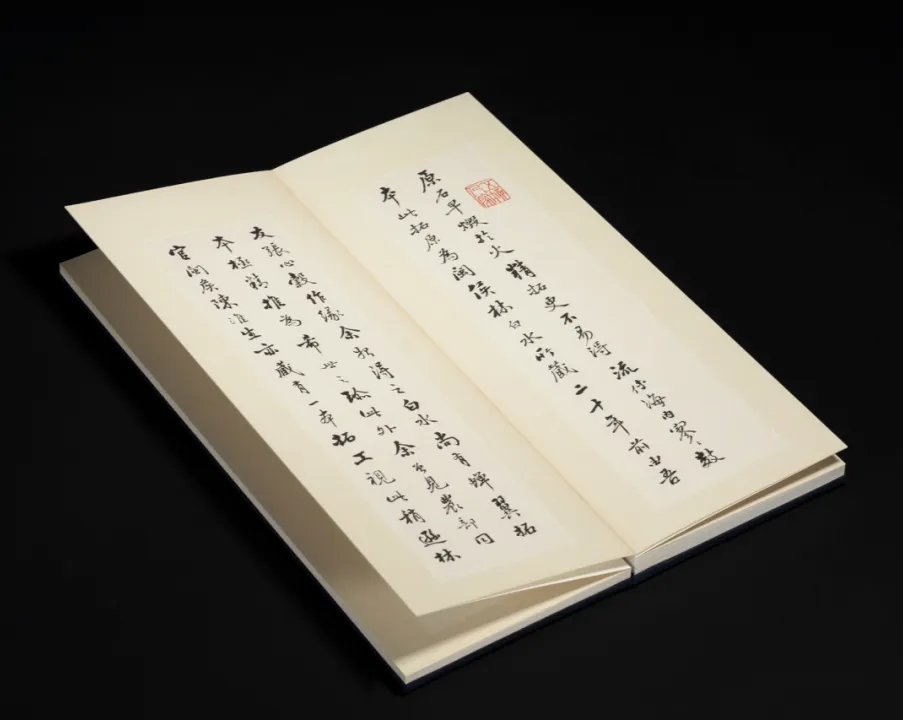 原石早燬於火精拓更不易得流傳海内寥〻數
本此拓原為閩侯林白水所藏二十年前由吾
友張心穀作緣余始得之白水尚有蟬翼拓
本極精推為希世之珍此外余曾見農部同
官閩侯陳淮生亦藏有一本拓工視此稍遜林